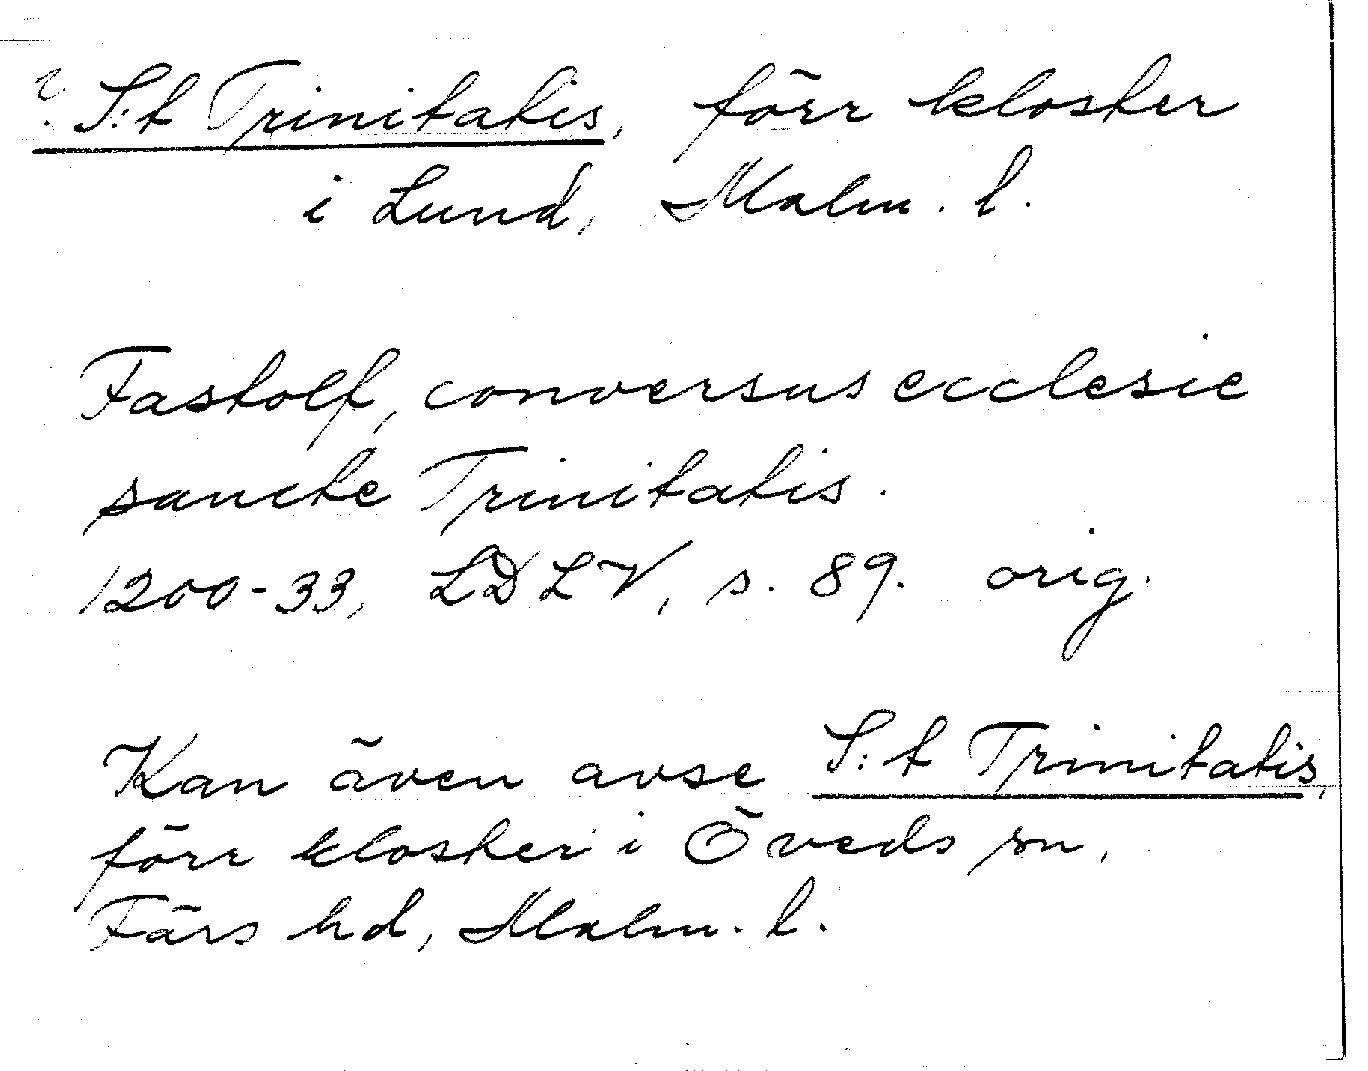 ? S:t Trinitatis, förr kloster
i Lund, Malm. l.
Fastolf, conversus ecclesie
sancte Trinitatis.
1200-33, LDLV, s. 89. orig.
Kan även avse S:t Trinitatis,
förr kloster i Öveds sn,
Färs hd, Malm. l.